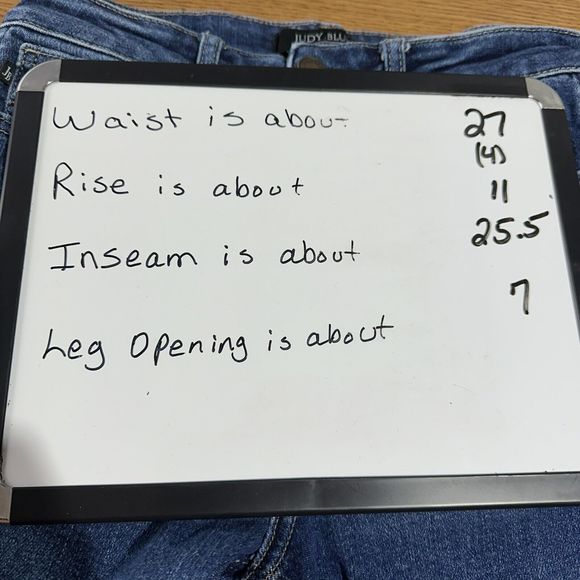 JUDY BLU
Waist is about 27
(4)
Rise is about 11
Inseam is about 25.5
Leg Opening is about 7